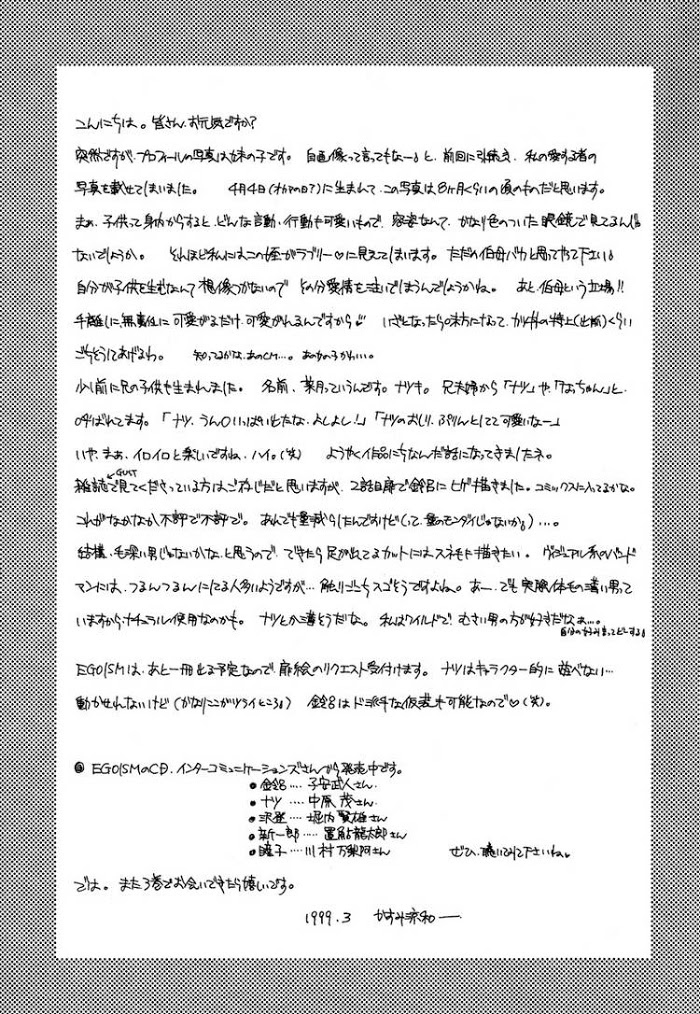 こんにちは。皆さん、お元気ですか?
突然ですが、プロフィールの写真は妹の子です。 自画像って言ってもなー。と、前回に引続き、私の愛する者の
写真を載せてしまいました。 4月4日(オカマの日?)に生まれて、この写真は8ヶ月くらいの頃のものだと思います。
まぁ、子供って身内からすると、どんな言動・行動も可愛いもので、容姿なんて、かなり色のついた眼鏡で見てるんじゃ
ないでしょうか。 それほど私にはこの姪がラブリー♡に見えてしまいます。ただの伯母バカと思ってやって下さい。
自分が子供を生むなんて想像つかないので その分愛情を注いでしまうんでしょうかね。 あと、伯母という立場!!
手離しに無責任に可愛がるだけ可愛がれるんですから♡ いざとなったら味方になって、カツ丼の特上(出前)くらい
ごちそうしてあげるわ。 知ってるかな、あのCM…。あの女の子かわいい。
少し前に兄の子供も生まれました。 名前、菜月っていうんです。ナツキ。 兄夫婦から「ナツ」や、「なっちゃん」と、
呼ばれてます。「ナツ、うん〇いっぱいしたな、よしよし!」「ナツのおしり、ぷりんとしてて可愛いなー」
いや、まぁ、イロイロと楽しいですね、ハイ。(笑) ようやく作品にちなんだ話になってきましたネ。
雑誌で見てくださっている方はご存じだと思いますが、2話目扉で鈴呂にヒゲ描きました。コミックスに入ってるかな。
←GUST
これがなかなか不評で不評で。 あんでも量減らしたんですけど(って、量のモンダイじゃないか。)…。
結構、毛深い男じゃないかな、と思うので、できたら足が出てるカットにはスネ毛も描きたい。 ヴィジュアル系のバンド
マンには、つるんつるんにしてる人多いようですが…触りごこちスゴそうですよね。 あー、でも実際体毛の薄い男って
いますからナチュラル使用なのかも。 ナツとか薄そうだな。 私はワイルドで、むさい男の方が好きだなぁ…。
自分の好み言ってどーする。
EGOISMは、あと一冊出る予定なので、扉絵のリクエスト受付けます。 ナツはキャラクター的に遊べない…
動かせれないけど(かなりここがツライところ。) 鈴呂はド派手な仮装も可能なので♡(笑)。
◎ EGOISMのCD、インターコミュニケーションズさんから発売中です。
● 鈴呂…. 子安武人さん
● ナツ …. 中原 茂さん
● … 堀内賢雄さん
● 新一郎….. 置鮎龍太郎さん
● 瞳子….川村万梨阿さん
ぜひ、聴いてみて下さいね。
では。また3巻でお会いできたら嬉しいです。
1999.3 かすみ涼和ー